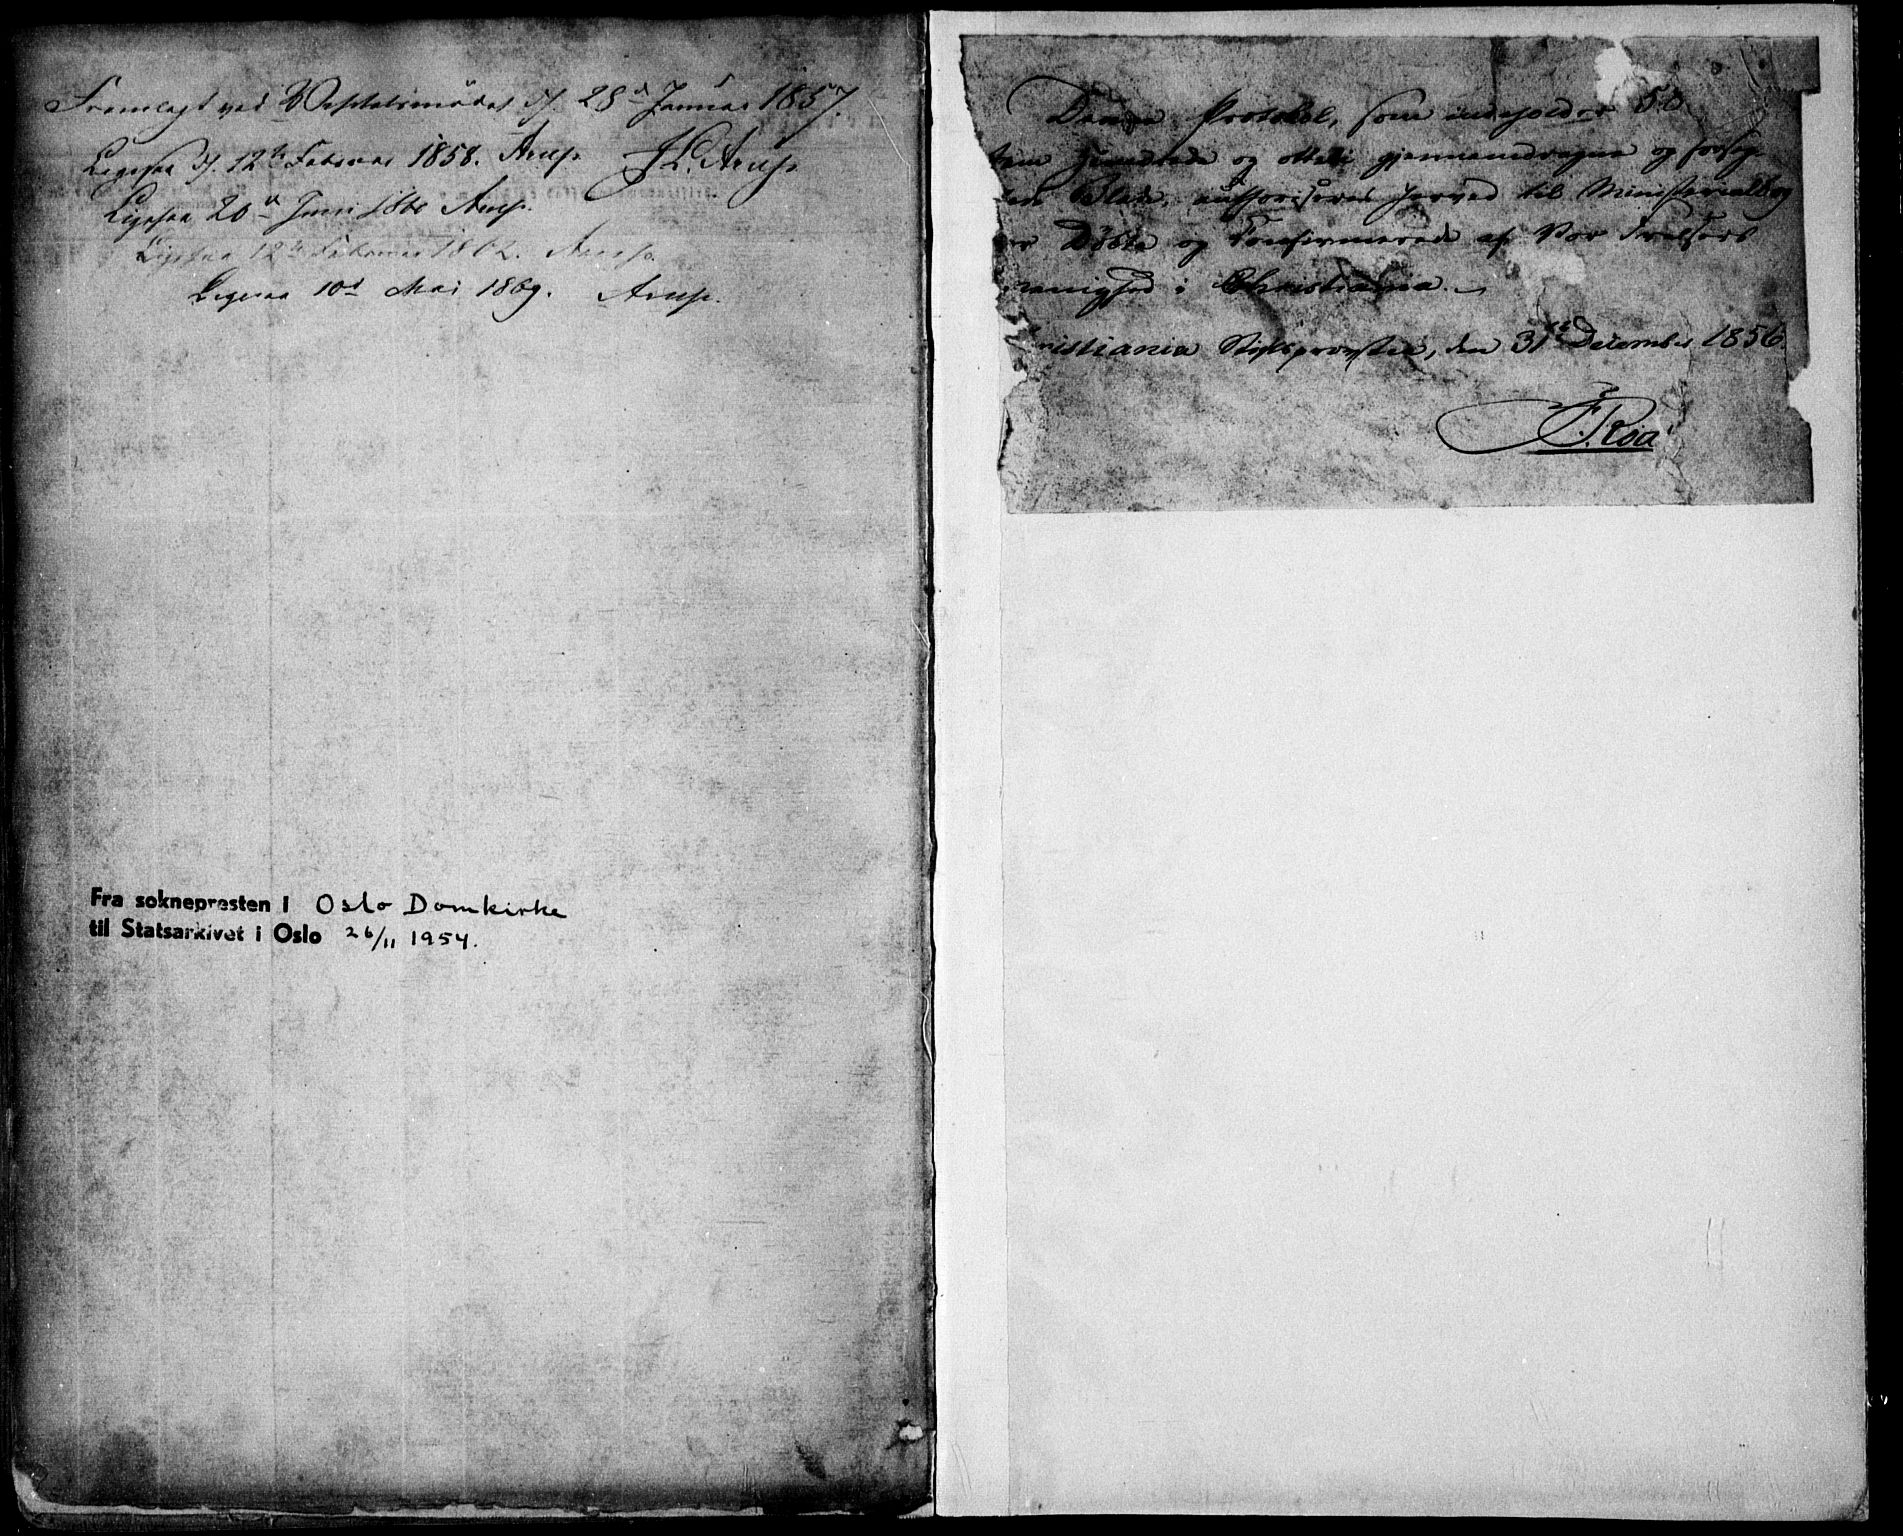 Fremlagt ved Visitatsmødet d. 28d Januar 1857.
J L Arup.
Ligesaa d. 12te Februar 1858. Arup.
Ligesaa 20d Juni 1860 Arup.
Ligesaa 12te Februar 1862. Arup.
Ligesaa 10d Mai 1869. Arup.
Fra soknepresten i Oslo Domkirke
til Statsarkivet i Oslo 26/11 1954.
Denne Protokol, som indeholder 58
fem Hundrede og otteti gjennemdragne og forseg
Blade, authoriseres herved til Ministerialbog
Døbte og Confirmerede af Vor Frelsers
Menighed i Christiania.
ristiania Stiftsprovstie, den 31te December 1856